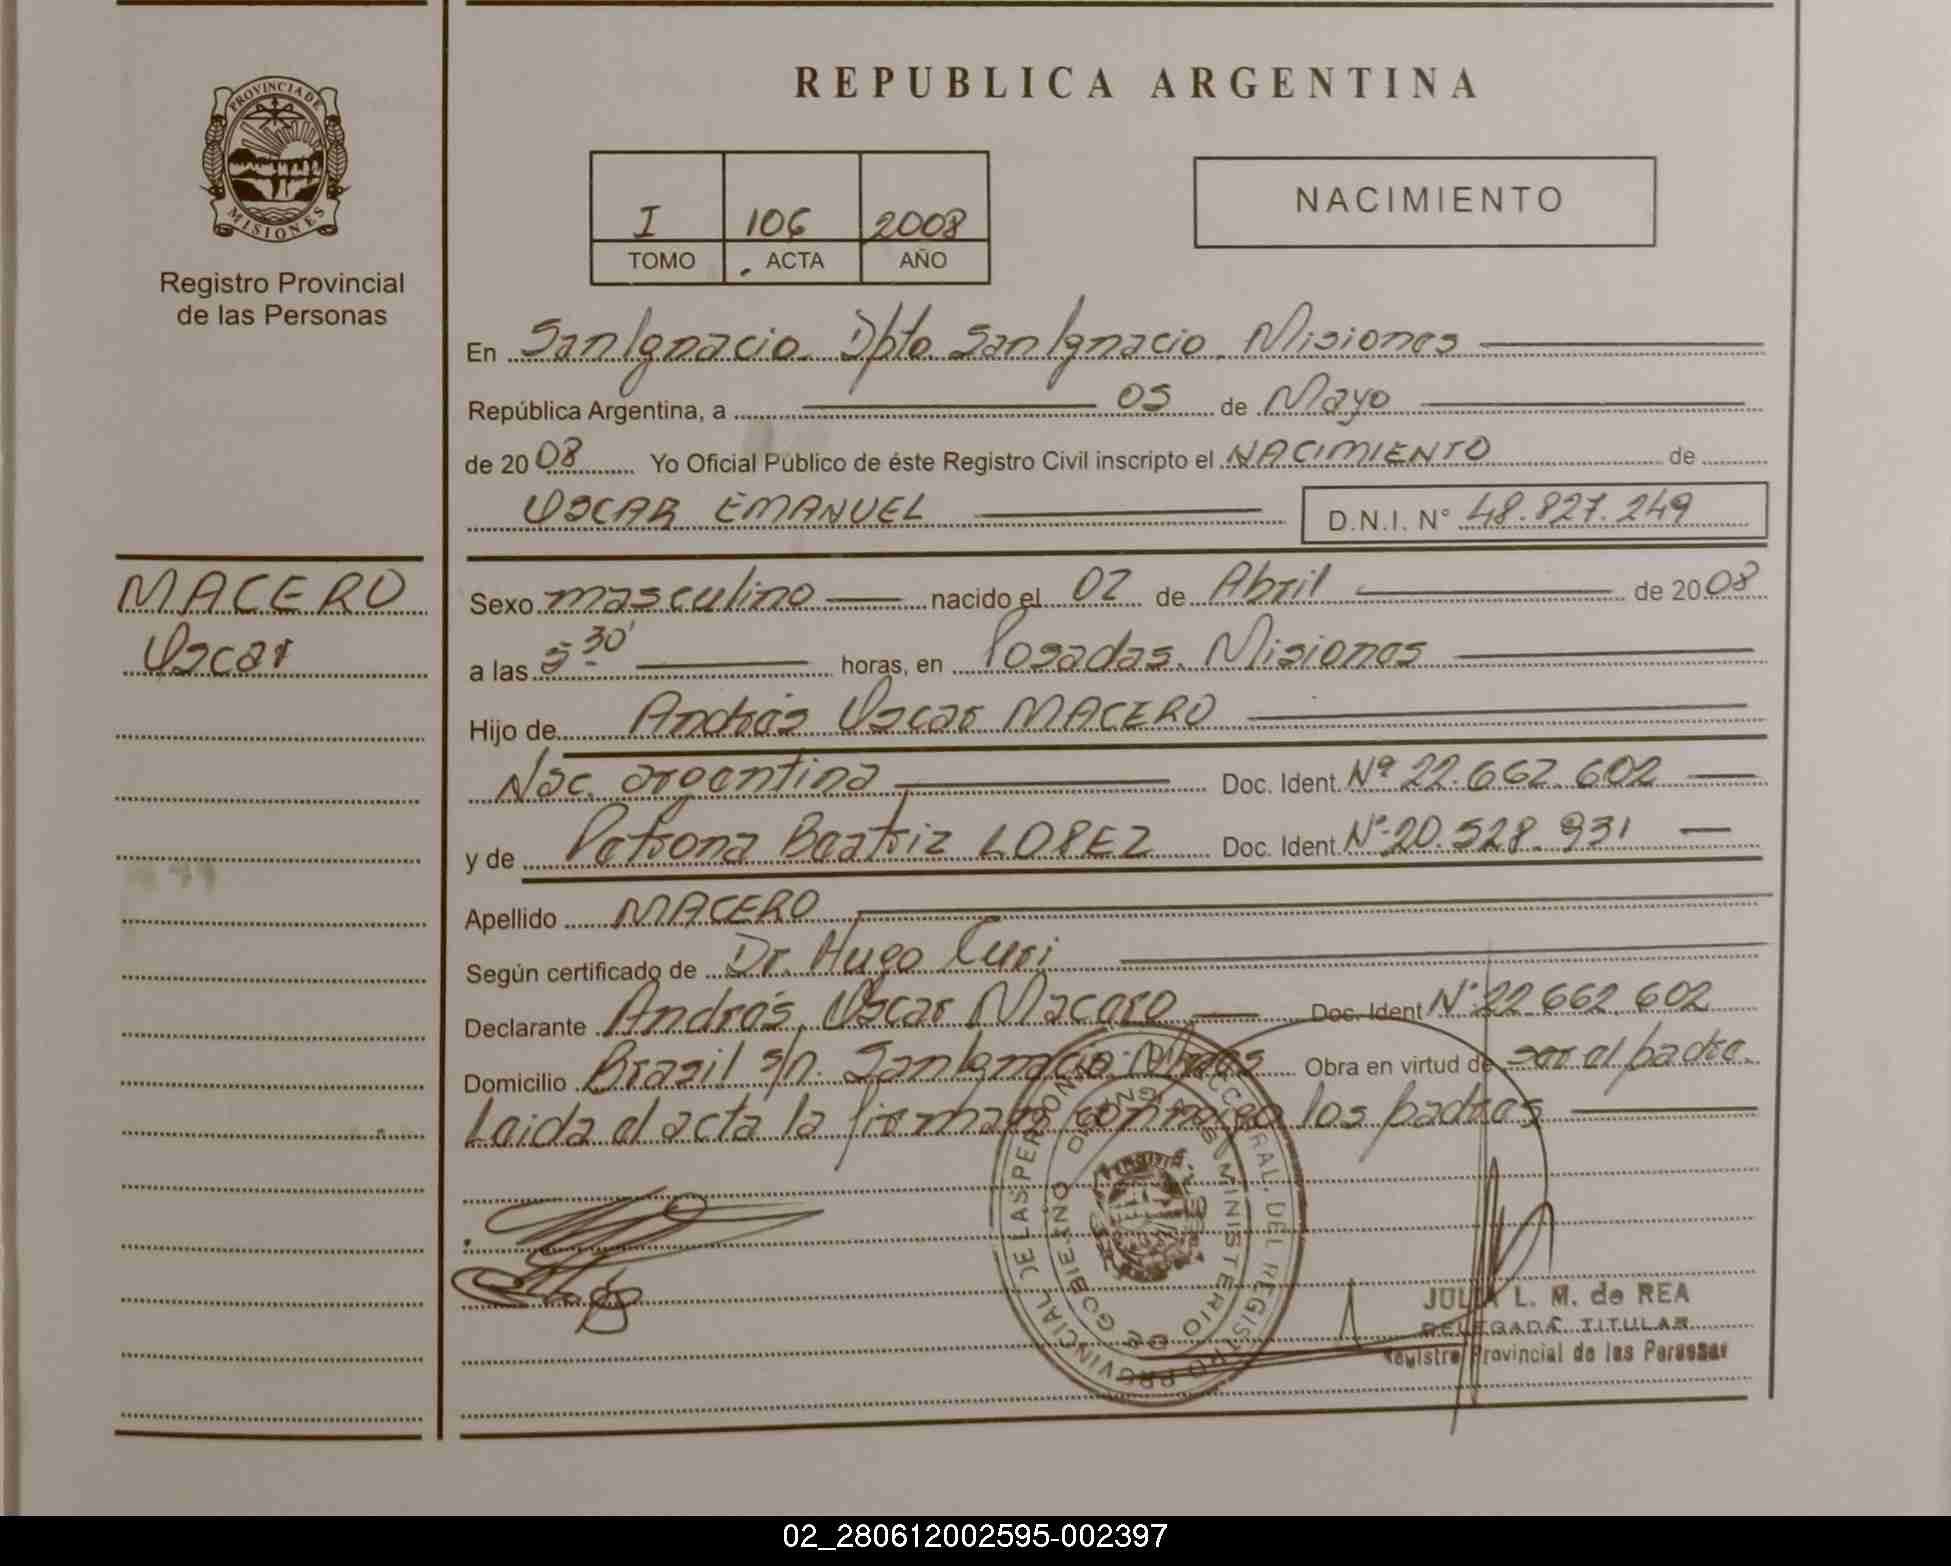 PROVINCIA DE
MISIONES
Registro Provincial
de las Personas
REPUBLICA ARGENTINA
I 106 2008
TOMO ACTA AÑO
NACIMIENTO
En San Ignacio. Dpto. San Ignacio. Misiones
República Argentina, a 05 de Mayo
de 2008 Yo Oficial Público de éste Registro Civil inscripto el NACIMIENTO de
OSCAR EMANUEL D.N.I. N° 48.827.249
MACERO
Oscar
Sexo masculino nacido el 02 de Abril de 2008
a las 5 30' horas, en Posadas. Misiones
Hijo de Andrés Oscar MACERO
Nac. argentina Doc. Ident. Nº 22.662.602
y de Petrona Beatriz LOPEZ Doc. Ident. N° 20.528.931
Apellido MACERO
Según certificado de Dr. Hugo Curi
Declarante Andrés Oscar Macero Doc. Ident N° 22.662.602
Domicilio Brasil s/n. San Ignacio. Mnes Obra en virtud de ser el padre.
Leida el acta la firman conmigo los padres
JULIA L. M. de REA
DELEGADA TITULAR
Registro Provincial de las Personas
02_280612002595-002397